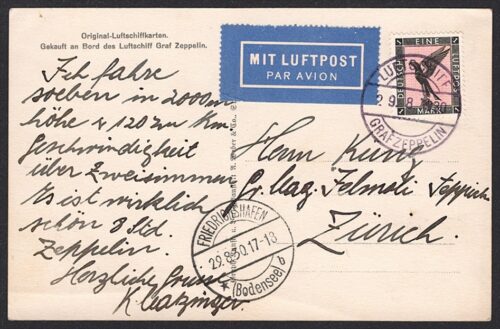 Original-Luftschiffkarten.
Gekauft an Bord des Luftschiff Graf Zeppelin.
MIT LUFTPOST
PAR AVION
DEUTSCHE
EINE
LUFTPOST
MARK
LUFTSCHIFF
29.8
GRAF ZEPPELIN
Ich fahre
soeben in 2000m
höhe & 120 zu Km
Geschwindigkeit
über Zweisimmen
Es ist wirklich
schön 8 Std.
Zeppelin.
Herzliche Grüsse
Herrn
Gr. Mag. Jelmoli Teppich
Zürich.
FRIEDRICHSHAFEN
29.8.30.17-18
(Bodensee) b